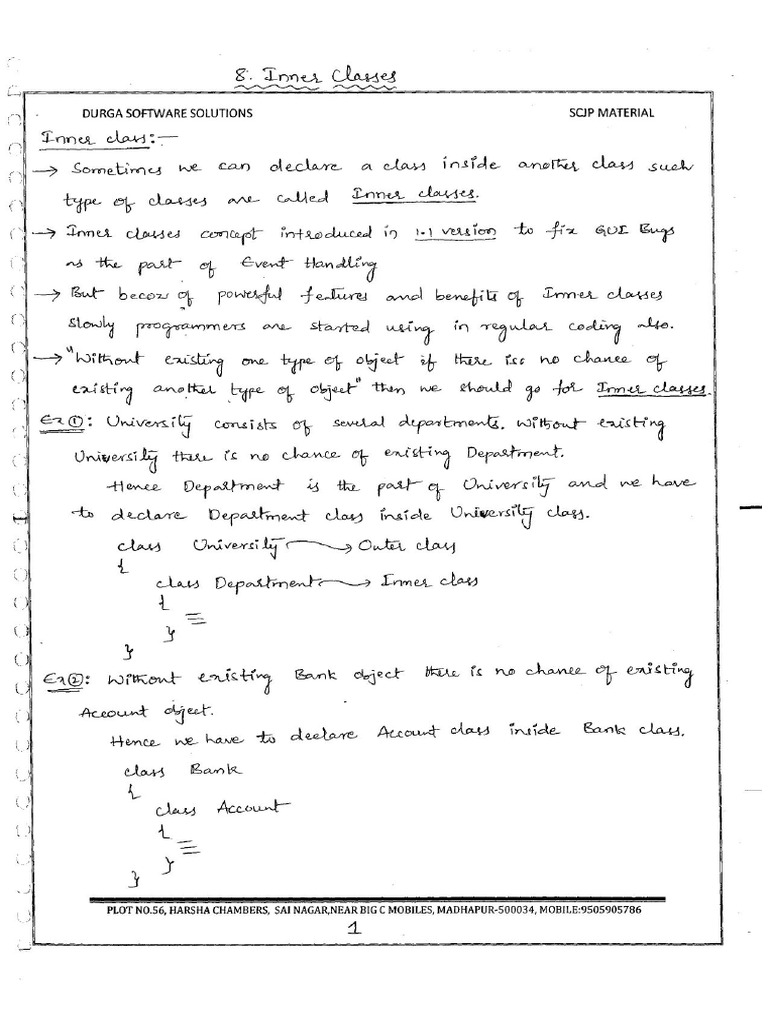 8. Inner Classes
DURGA SOFTWARE SOLUTIONS SCJP MATERIAL
Inner class:-
→ Sometimes we can declare a class inside another class such
type of classes are called Inner classes.
→ Inner classes concept introduced in 1.1 version to fix GUI Bugs
as the part of Event Handling
→ But becoz of powerful features and benefits of Inner classes
slowly programmers are started using in regular coding also.
→ "Without existing one type of object if there iss no chance of
existing another type of object" then we should go for Inner classes.
Ex①: University consists of several departments. Without existing
University there is no chance of existing Department.
Hence Department is the part of University and we have
to declare Department class inside University class.
class University → Outer class
{
class Department → Inner class
{
}
}
Ex②: Without existing Bank object there is no chance of existing
Account object.
Hence we have to declare Account class inside Bank class.
class Bank
{
class Account
{
}
}
PLOT NO.56, HARSHA CHAMBERS, SAI NAGAR,NEAR BIG C MOBILES, MADHAPUR-500034, MOBILE:9505905786
1